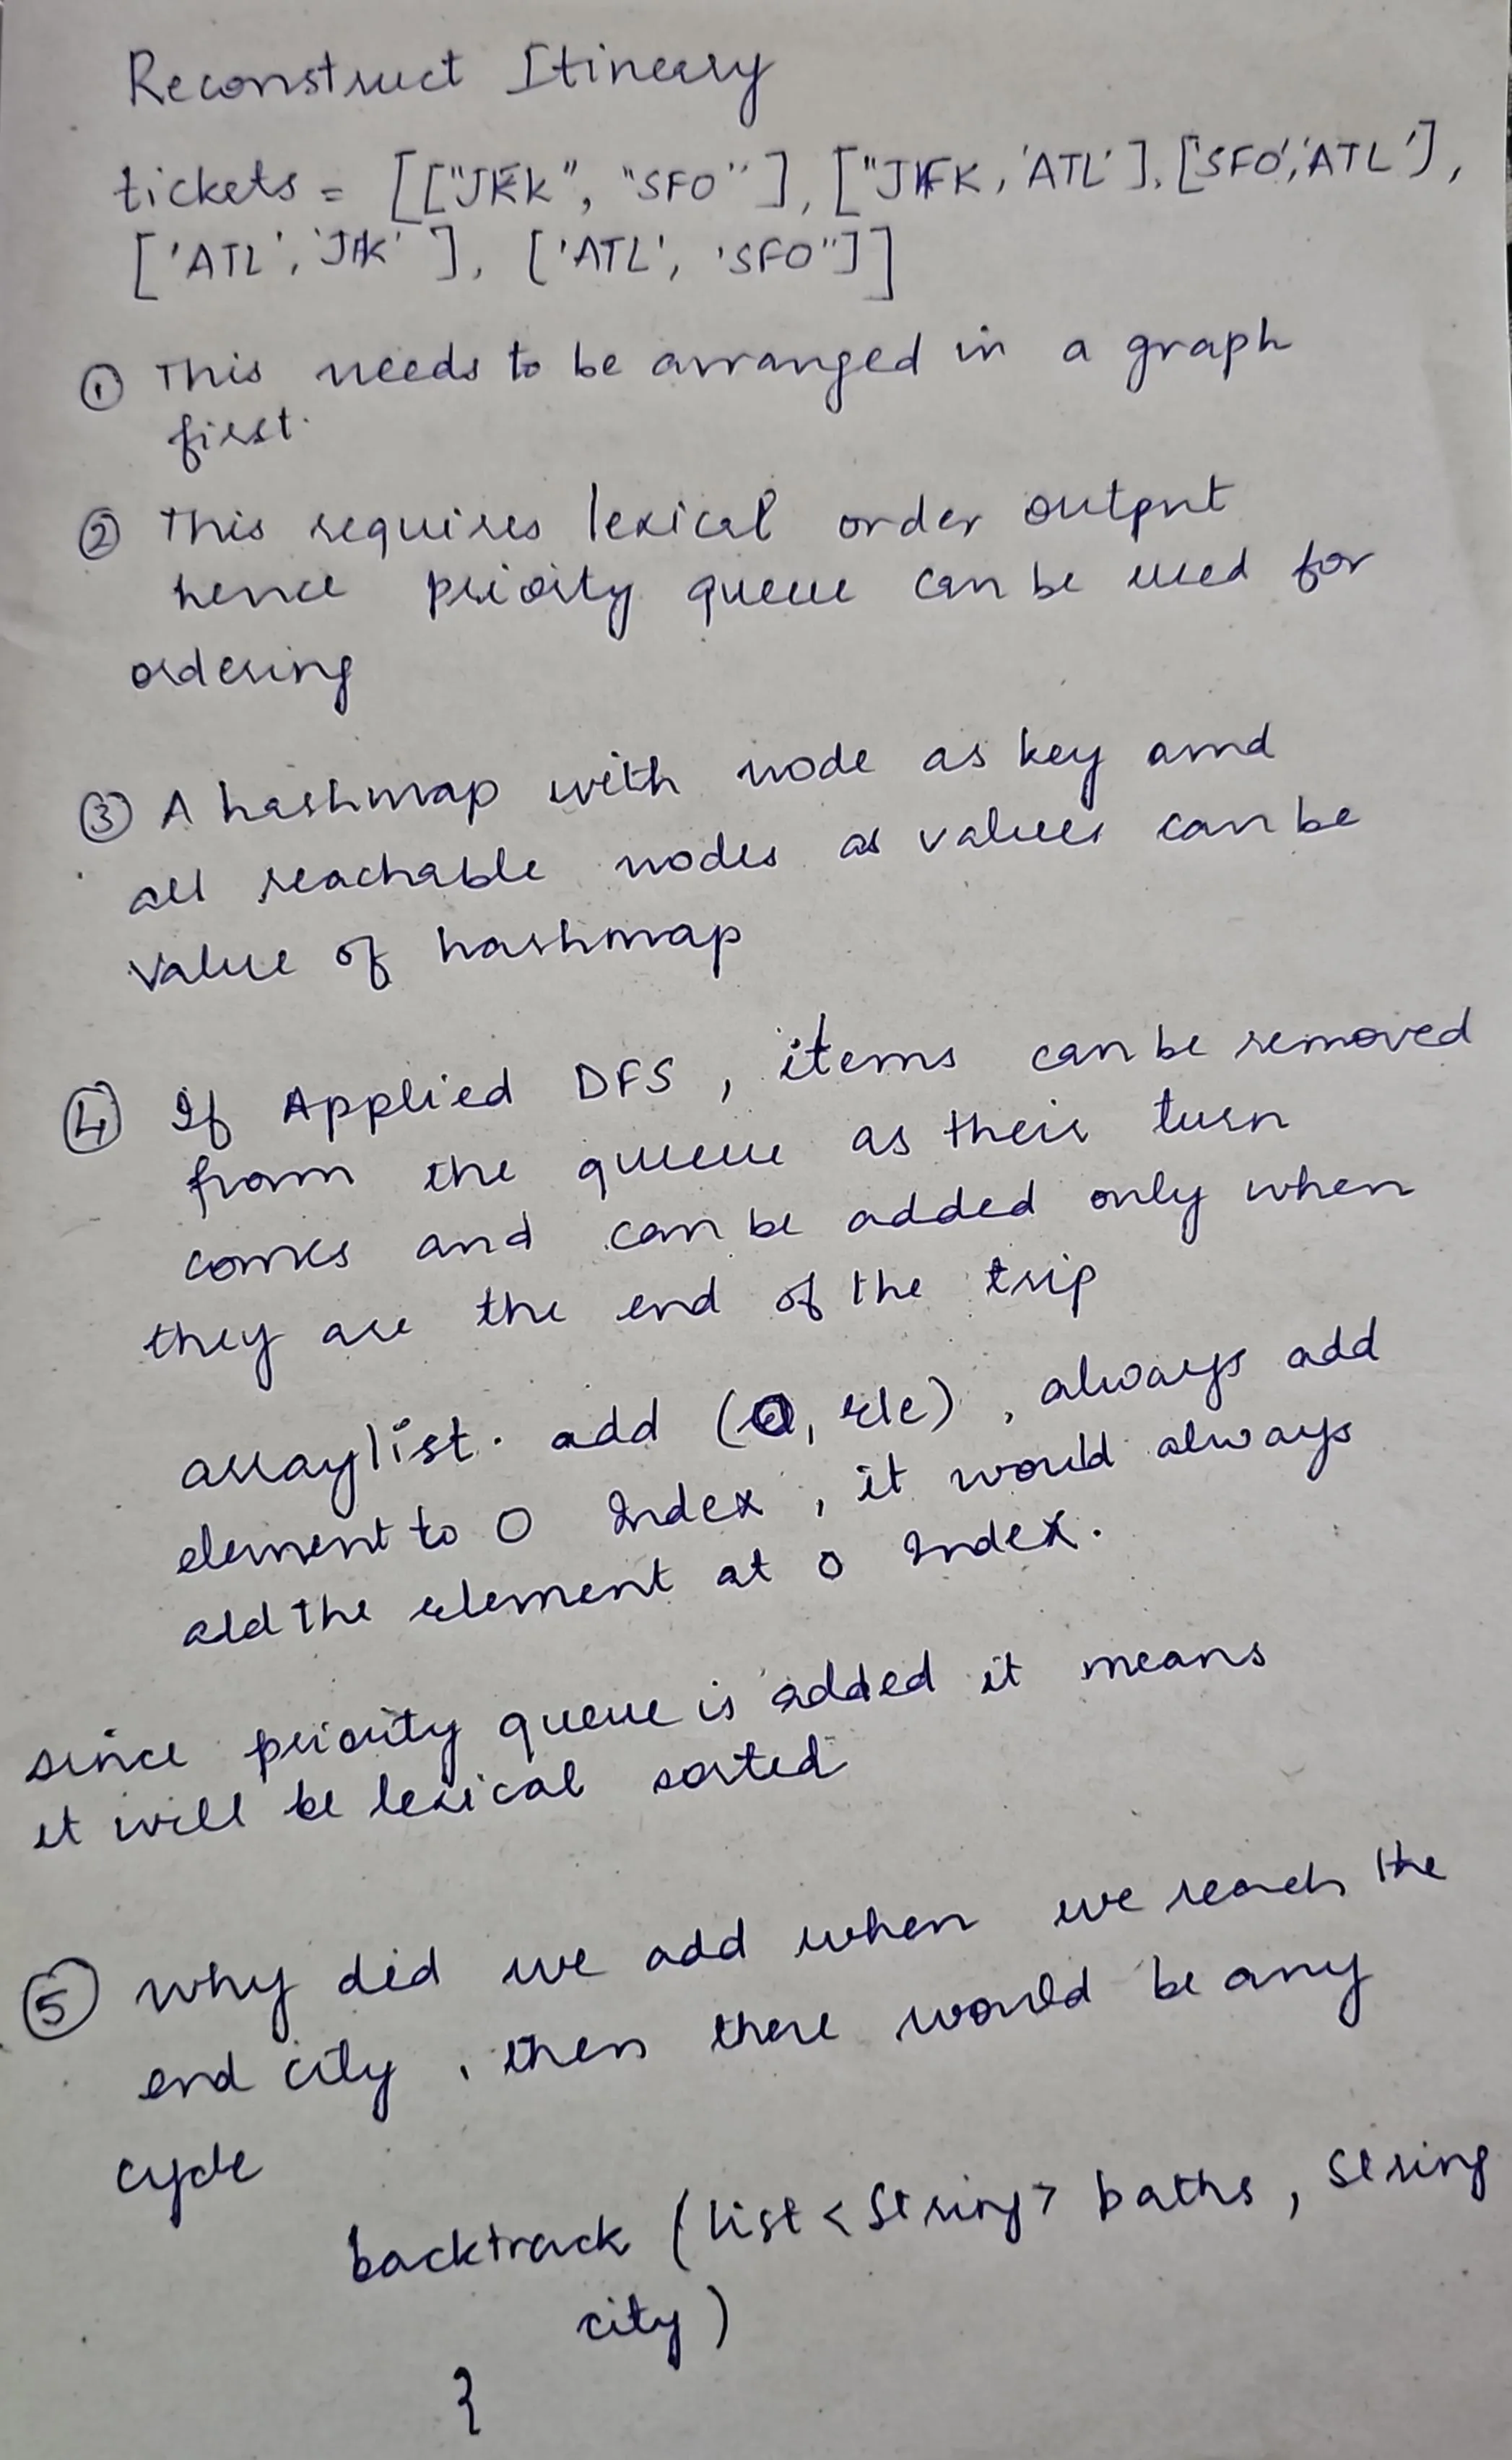 Reconstruct Itineary
tickets = [["JFK", "SFO"], ["JFK, 'ATL'], ['SFO', 'ATL'],
['ATL', 'JFK'], ['ATL', 'SFO"]]
① This needs to be arranged in a graph
first.
② This requires lexical order output
hence priority queue can be used for
ordering
③ A hashmap with node as key and
all reachable nodes as values can be
value of hashmap
④ If Applied DFS, items can be removed
from the queue as their turn
comes and can be added only when
they are the end of the trip
arraylist. add (0, ele), always add
element to 0 Index, it would always
add the element at 0 Index.
since priority queue is added it means
it will be lexical sorted
⑤ Why did we add when we reach the
end city, then there would be any
cycle
backtrack (list<String> paths, String
city)
}